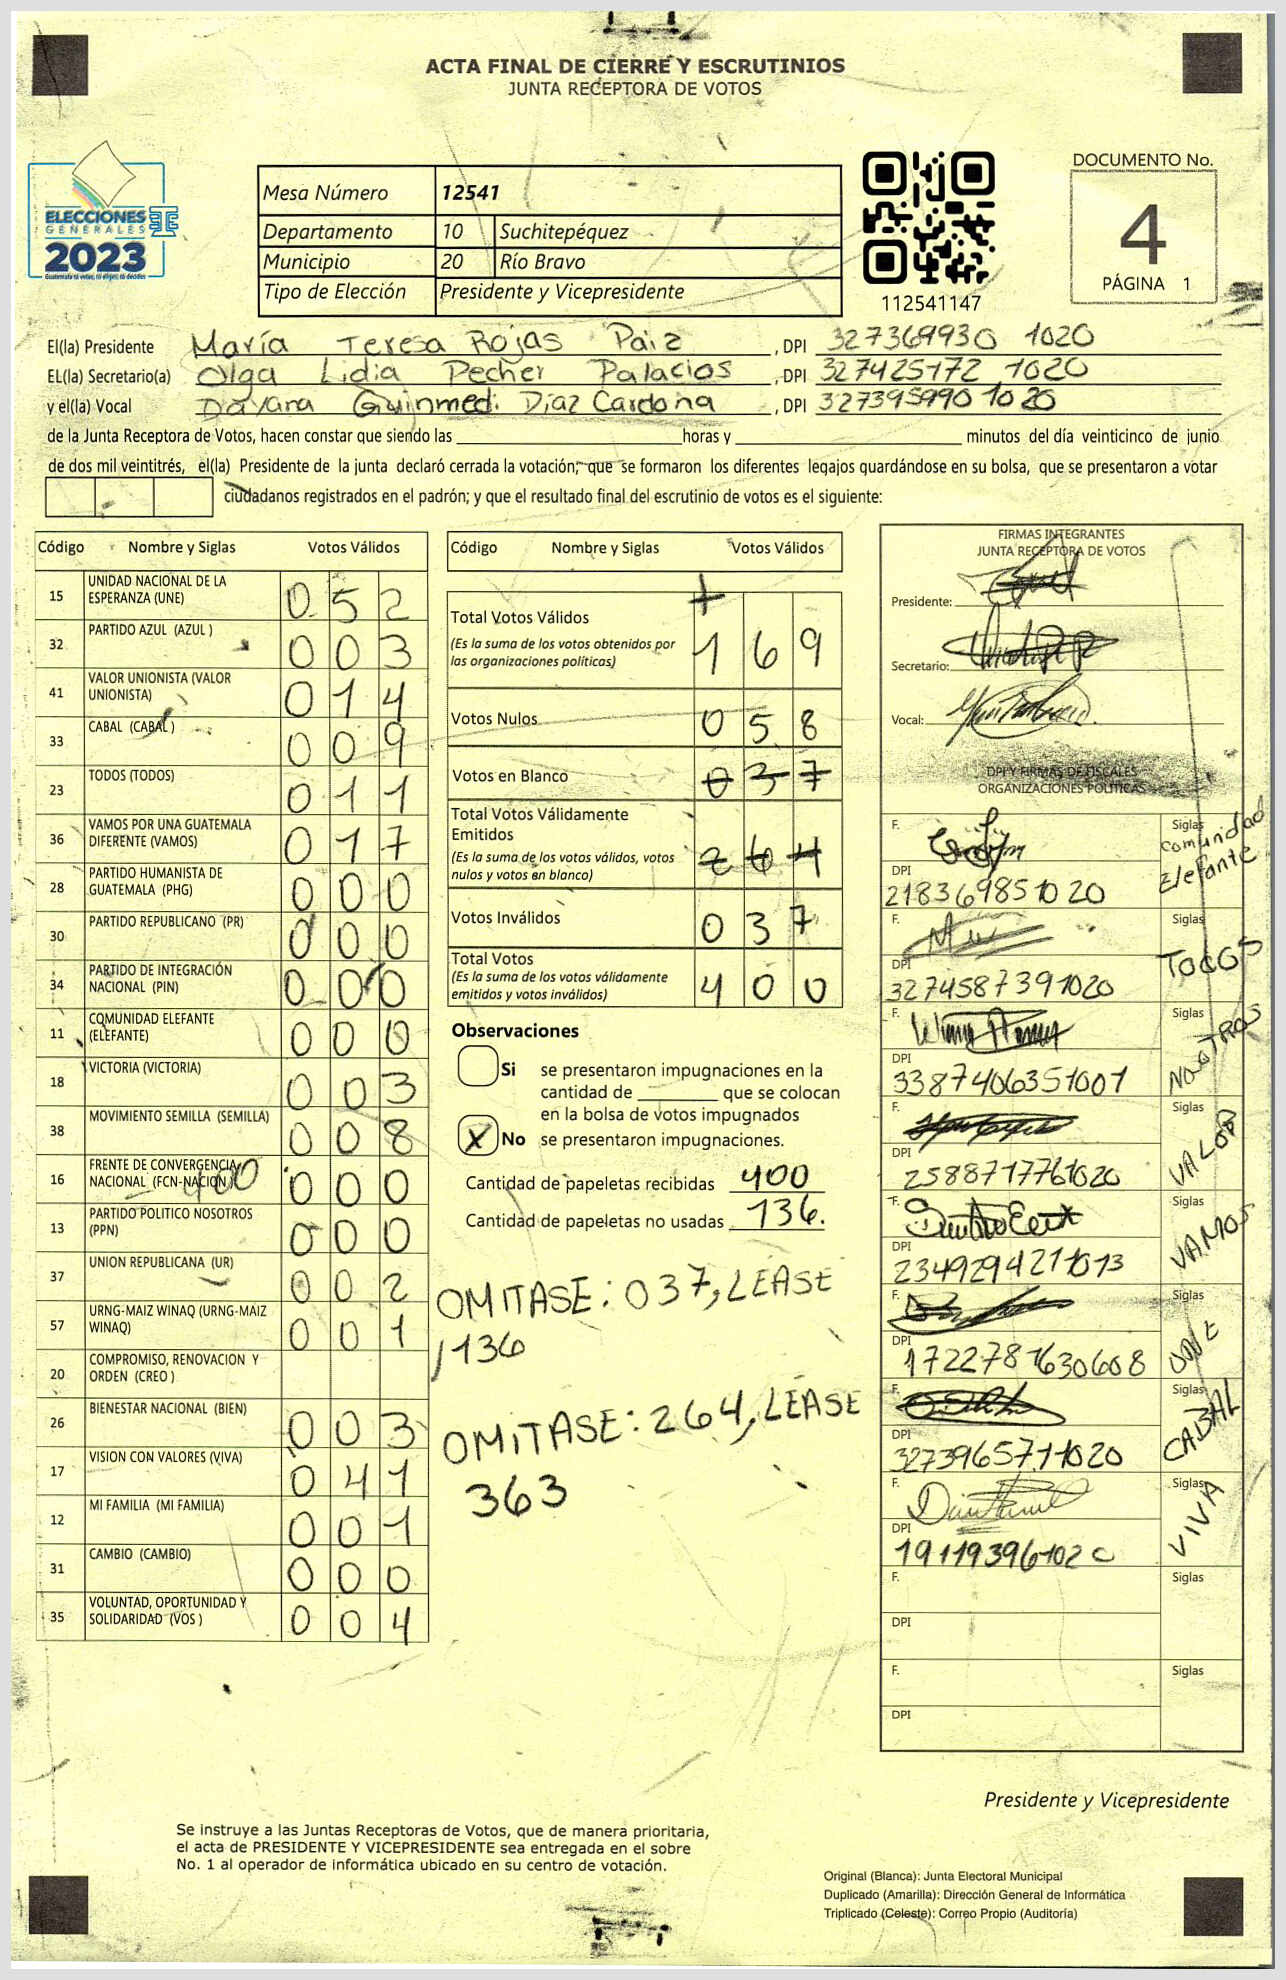 ACTA FINAL DE CIERRE Y ESCRUTINIOS
JUNTA RECEPTORA DE VOTOS
ELECCIONES
GENERALES
2023
Mesa Número 12541
Departamento 10 Suchitepéquez
Municipio 20 Río Bravo
Tipo de Elección Presidente y Vicepresidente
112541147
DOCUMENTO No.
4
PÁGINA 1
El(la) Presidente María Teresa Rojas Paiz , DPI 327369930 1020
EL(la) Secretario(a) Olga Lidia Pecher Palacios , DPI 327425172 1020
y el(la) Vocal Dayana Guinmedi Díaz Cardona , DPI 327395990 1020
de la Junta Receptora de Votos, hacen constar que siendo las horas y minutos del día veinticinco de junio
de dos mil veintitrés, el(la) Presidente de la junta declaró cerrada la votación; que se formaron los diferentes legajos quardándose en su bolsa, que se presentaron a votar
ciudadanos registrados en el padrón; y que el resultado final del escrutinio de votos es el siguiente:
Código Nombre y Siglas Votos Válidos
15 UNIDAD NACIONAL DE LA ESPERANZA (UNE) 0 5 2
32 PARTIDO AZUL (AZUL ) 0 0 3
41 VALOR UNIONISTA (VALOR UNIONISTA) 0 1 4
33 CABAL (CABAL ) 0 0 9
23 TODOS (TODOS) 0 1 1
36 VAMOS POR UNA GUATEMALA DIFERENTE (VAMOS) 0 1 7
28 PARTIDO HUMANISTA DE GUATEMALA (PHG) 0 0 0
30 PARTIDO REPUBLICANO (PR) 0 0 0
34 PARTIDO DE INTEGRACIÓN NACIONAL (PIN) 0 0 0
11 COMUNIDAD ELEFANTE (ELEFANTE) 0 0 0
18 VICTORIA (VICTORIA) 0 0 3
38 MOVIMIENTO SEMILLA (SEMILLA) 0 0 8
16 FRENTE DE CONVERGENCIA NACIONAL (FCN-NACION ) 0 0 0
400
13 PARTIDO POLITICO NOSOTROS (PPN) 0 0 0
37 UNION REPUBLICANA (UR) 0 0 2
57 URNG-MAIZ WINAQ (URNG-MAIZ WINAQ) 0 0 1
20 COMPROMISO, RENOVACION Y ORDEN (CREO )
26 BIENESTAR NACIONAL (BIEN) 0 0 3
17 VISION CON VALORES (VIVA) 0 4 1
12 MI FAMILIA (MI FAMILIA) 0 0 1
31 CAMBIO (CAMBIO) 0 0 0
35 VOLUNTAD, OPORTUNIDAD Y SOLIDARIDAD (VOS ) 0 0 4
Código Nombre y Siglas Votos Válidos
Total Votos Válidos
(Es la suma de los votos obtenidos por
las organizaciones políticas)
1 6 9
Votos Nulos 0 5 8
Votos en Blanco 0 3 7
Total Votos Válidamente
Emitidos
(Es la suma de los votos válidos, votos
nulos y votos en blanco)
2 6 4
Votos Inválidos 0 3 7
Total Votos
(Es la suma de los votos válidamente
emitidos y votos inválidos)
4 0 0
Observaciones
Si se presentaron impugnaciones en la
cantidad de que se colocan
en la bolsa de votos impugnados
X No se presentaron impugnaciones.
Cantidad de papeletas recibidas 400
Cantidad de papeletas no usadas 136.
OMITASE: 037, LEASE
136
OMITASE: 264, LEASE
363
FIRMAS INTEGRANTES
JUNTA RECEPTORA DE VOTOS
Presidente:
Secretario:
Vocal:
DPI Y FIRMAS DE FISCALES
ORGANIZACIONES POLÍTICAS
F. Siglas
Comunidad
Elefante
DPI
218369851020
F. Siglas
TODOS
DPI
3274587391020
F. Siglas
NOSOTROS
DPI
3387406351001
F. Siglas
VALOR
DPI
2588717761020
F. Siglas
VAMOS
DPI
2349294211013
F. Siglas
UNE
DPI
1722781630608
F. Siglas
CABAL
DPI
3273965711020
F. Siglas
VIVA
DPI
F. Siglas
DPI
F. Siglas
DPI
Presidente y Vicepresidente
Se instruye a las Juntas Receptoras de Votos, que de manera prioritaria,
el acta de PRESIDENTE Y VICEPRESIDENTE sea entregada en el sobre
No. 1 al operador de informática ubicado en su centro de votación.
Original (Blanca): Junta Electoral Municipal
Duplicado (Amarilla): Dirección General de Informática
Triplicado (Celeste): Correo Propio (Auditoría)